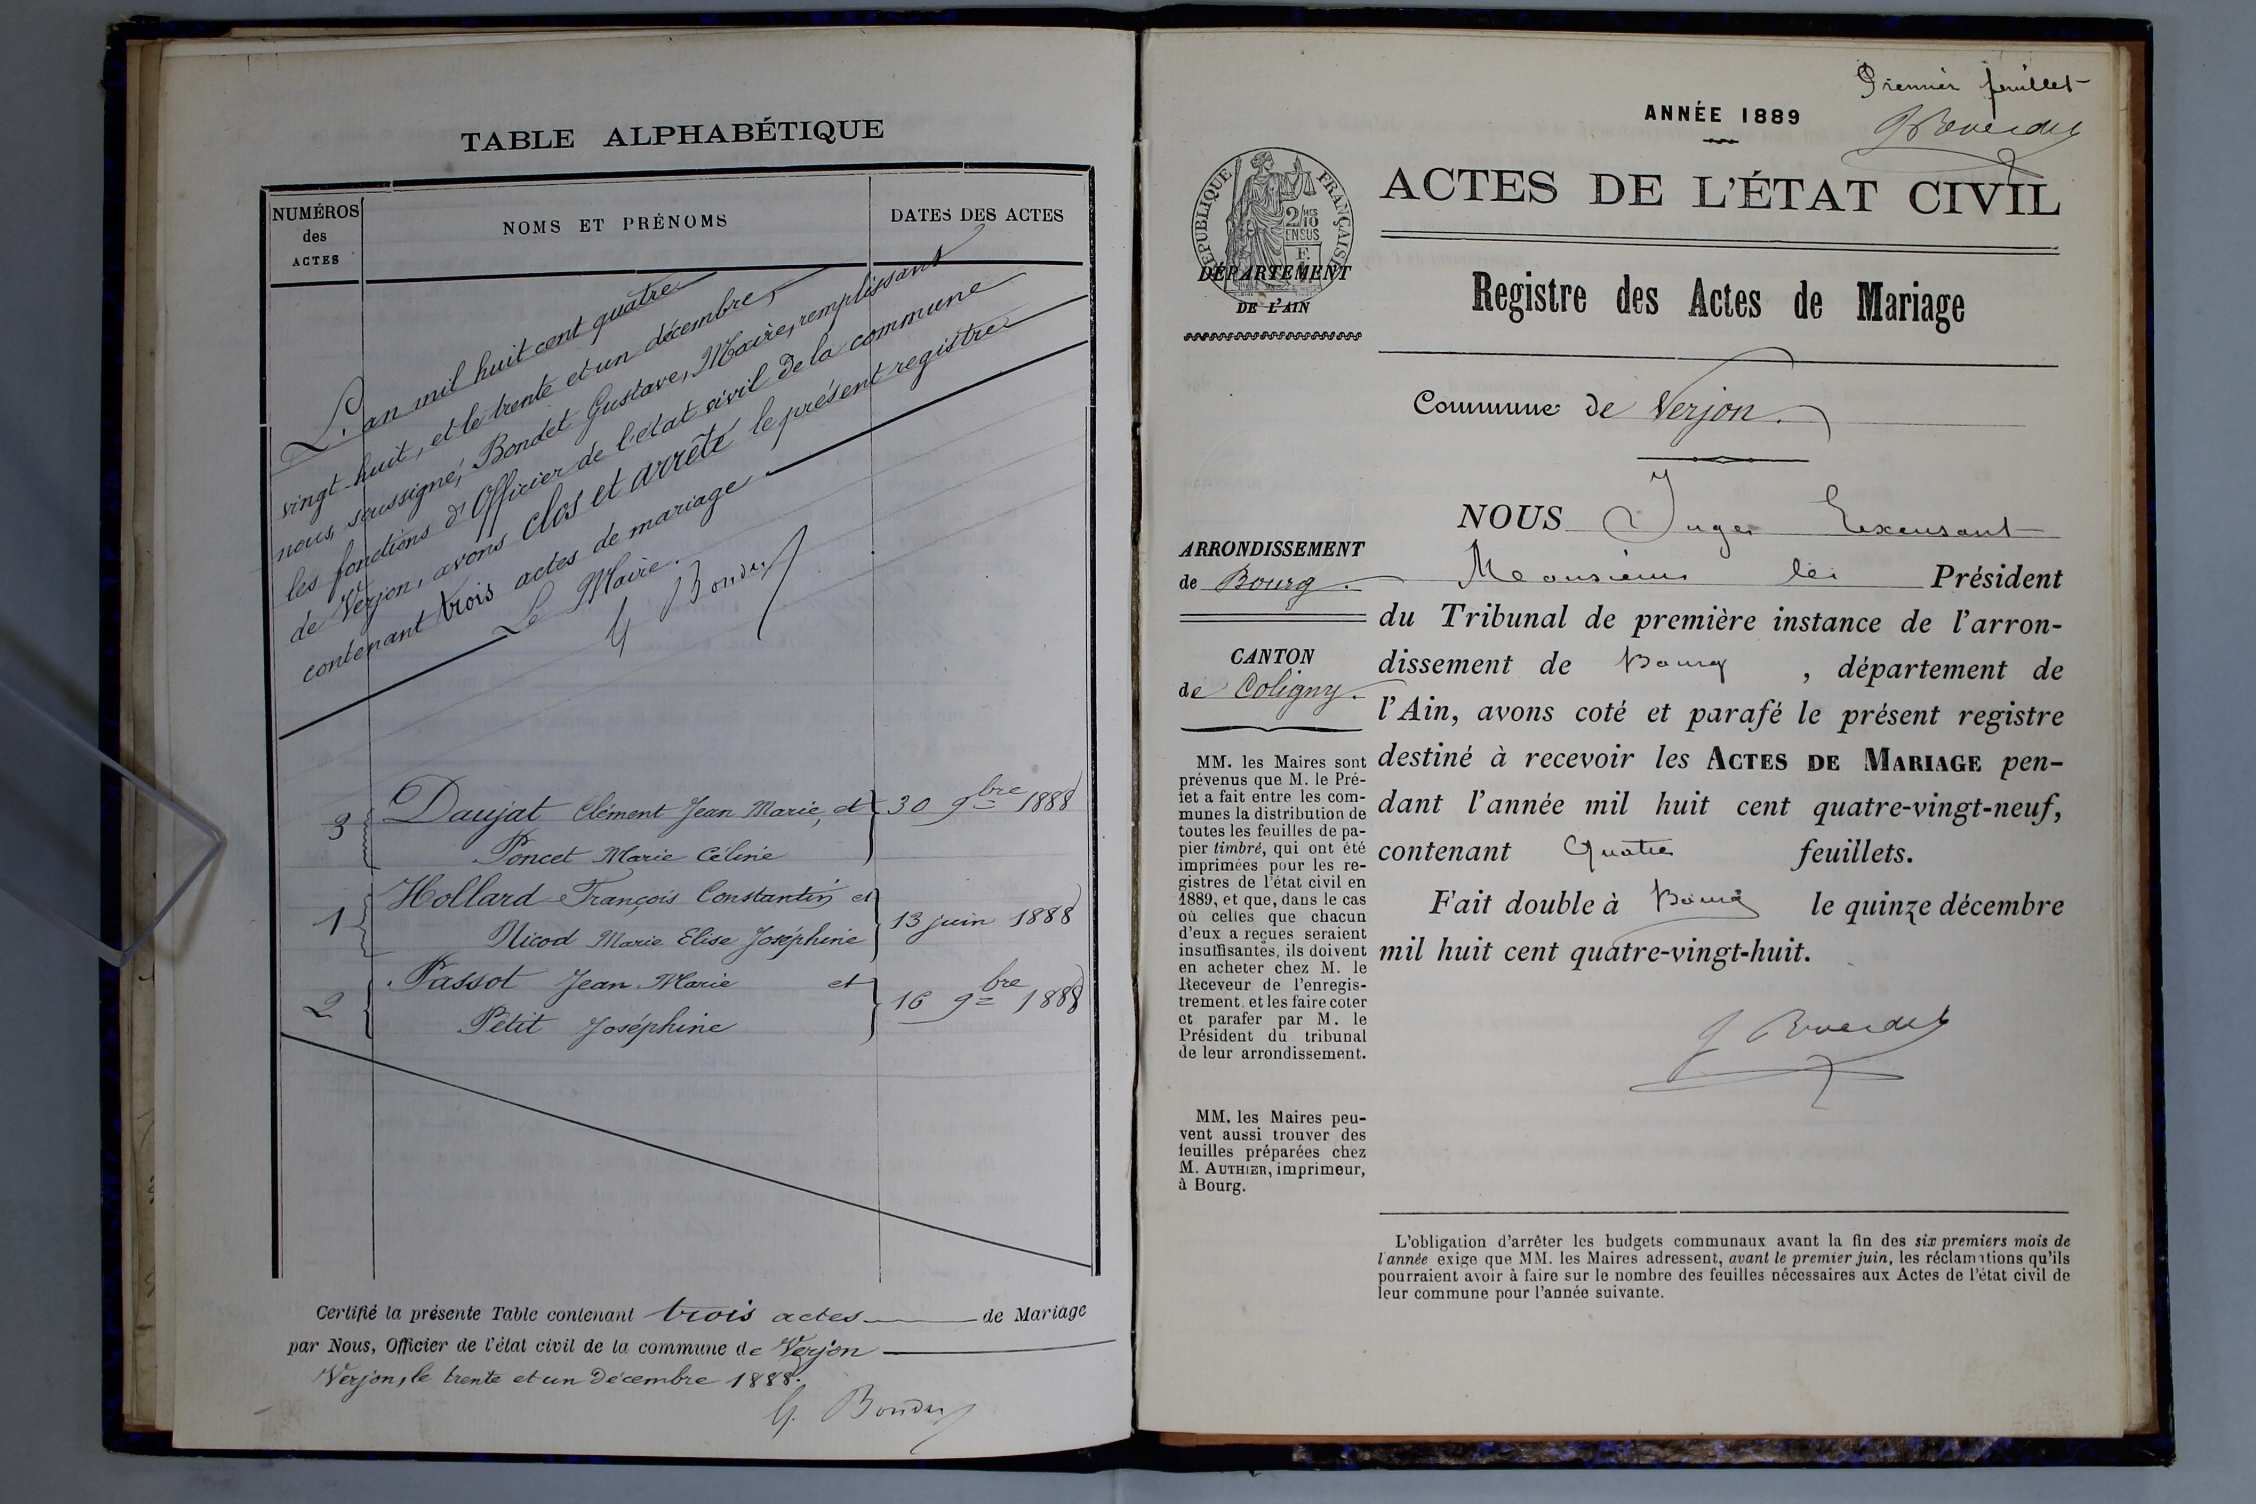 TABLE ALPHABÉTIQUE
NUMÉROS
des
ACTES
NOMS ET PRÉNOMS
DATES DES ACTES
L'an mil huit cent quatre
vingt-huit, et le trente et un décembre,
nous, soussigné, Bondet Gustave, Maire, remplissant
les fonctions d'Officier de l'état civil de la commune
de Verjon, avons clos et arrêté le présent registre
contenant trois actes de mariage
Le Maire.
G Bondet
3 Daujat Clément Jean Marie, et 30 9bre 1888
Poncet Marie Céline
1 Hollard François Constantin et 13 juin 1888
Nicod Marie Elise Joséphine
2 Passot Jean Marie et 16 9bre 1888
Petit Joséphine
Certifié la présente Table contenant trois actes de Mariage
par Nous, Officier de l'état civil de la commune de Verjon
Verjon, le trente et un Décembre 1888.
G. Bondet
Premier feuillet
ANNÉE 1889
RÉPUBLIQUE FRANÇAISE
2/10 MES
EN SUS
DÉPARTEMENT
DE L'AIN
ACTES DE L'ÉTAT CIVIL
Registre des Actes de Mariage
Commune de Verjon.
ARRONDISSEMENT
de Bourg.
CANTON
de Coligny.
MM. les Maires sont
prévenus que M. le Pré-
fet a fait entre les com-
munes la distribution de
toutes les feuilles de pa-
pier timbré, qui ont été
imprimées pour les re-
gistres de l'état civil en
1889, et que, dans le cas
où celles que chacun
d'eux a reçues seraient
insuffisantes, ils doivent
en acheter chez M. le
Receveur de l'enregis-
trement et les faire coter
et parafer par M. le
Président du tribunal
de leur arrondissement.
MM. les Maires peu-
vent aussi trouver des
feuilles préparées chez
M. AUTHIER, imprimeur,
à Bourg.
NOUS Juge
Monsieur le Président
du Tribunal de première instance de l'arron-
dissement de Bourg , département de
l'Ain, avons coté et parafé le présent registre
destiné à recevoir les ACTES DE MARIAGE pen-
dant l'année mil huit cent quatre-vingt-neuf,
contenant Quatre feuillets.
Fait double à Bourg le quinze décembre
mil huit cent quatre-vingt-huit.
L'obligation d'arrêter les budgets communaux avant la fin des six premiers mois de
l'année exige que MM. les Maires adressent, avant le premier juin, les réclamations qu'ils
pourraient avoir à faire sur le nombre des feuilles nécessaires aux Actes de l'état civil de
leur commune pour l'année suivante.